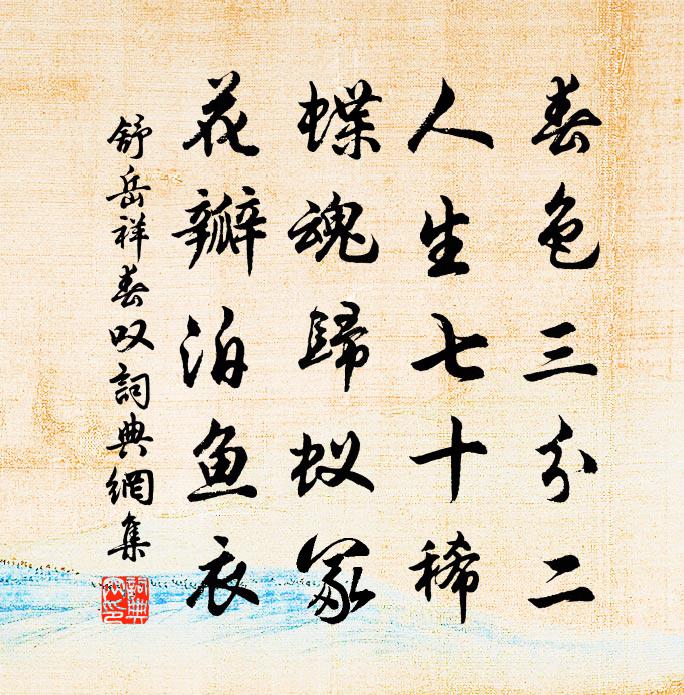 春色三分二
人生七十稀
蝶魂歸蚁冢
花瓣泊鱼衣
舒岳祥春叹詞典網集